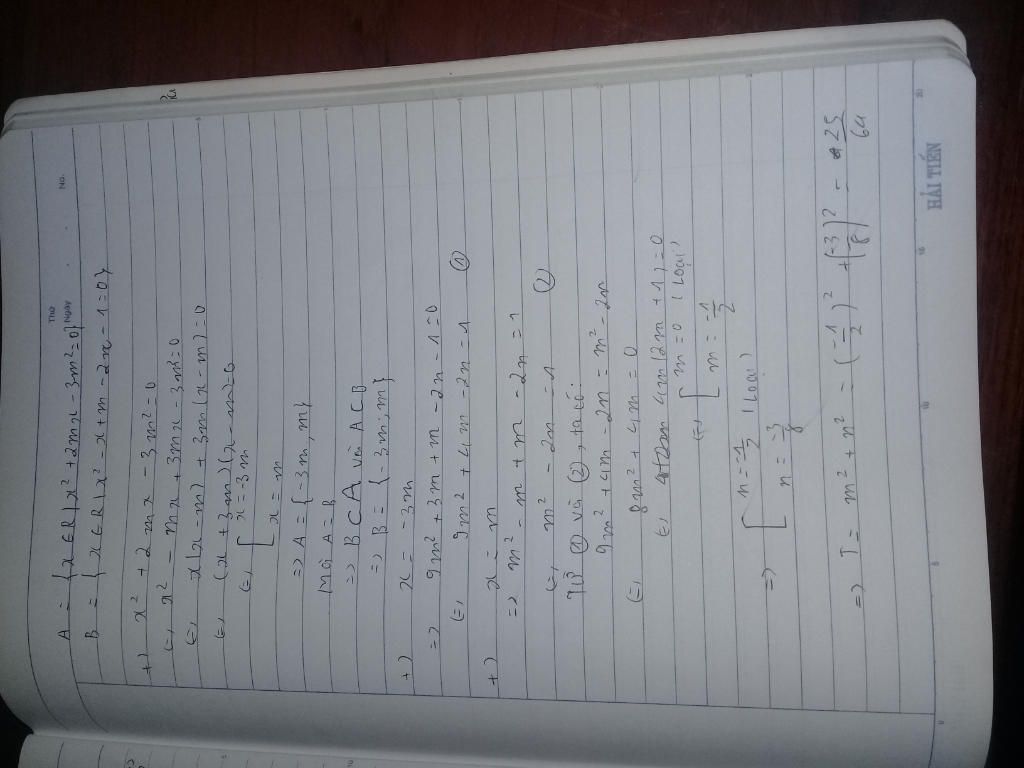 Thứ
Ngày
No.
A = {x ∈ R | x² + 2mx - 3m² = 0}
B = {x ∈ R | x² - x + m - 2n - 1 = 0}
+) x² + 2mx - 3m² = 0
(=) x² - mx + 3mx - 3m² = 0
(=) x(x - m) + 3m(x - m) = 0
(=) (x + 3m)(x - m) = 0
(=) [ x = -3m
[ x = m
=> A = {-3m, m}
Mà A = B
=> B ⊂ A và A ⊂ B
=> B = {-3m; m}
+) x = -3m
=> 9m² + 3m + m - 2n - 1 = 0
(=) 9m² + 4m - 2n = 1 (1)
+) x = m
=> m² - m + m - 2n = 1
(=) m² - 2n = 1 (2)
Từ (1) và (2), ta có:
9m² + 4m - 2n = m² - 2n
(=) 8m² + 4m = 0
(=) 4m(2m + 1) = 0
(=) [ m = 0 (loại)
[ m = -1/2
=> [ n = -1/2 (loại)
[ n = -3/8
=> T = m² + n² = (-1/2)² + (-3/8)² = 25/64
HẢI TIẾN